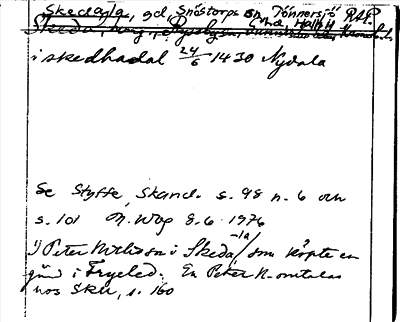 Skedala, gd, Snöstorps sn, Tönnersjö RAP.
hd, Hall
Skeda,
i skedhadal 24/6 1430 Nydala
Se Styffe, Skand. s. 98 n. 6 och
s. 101 M. Wbg 8.6 1976
1) Peter Nilsson i Skeda, som köpte en
-la
gård i Fryeled. En Peter N. omtalas
hos Sklr, s. 160